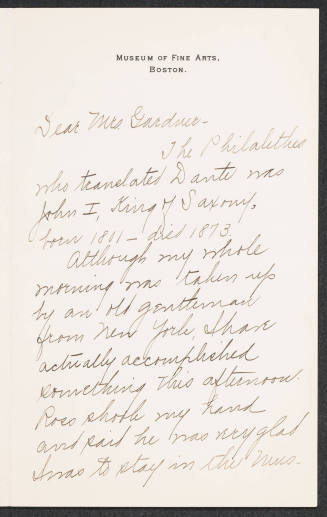 Museum of Fine Arts,
Boston.
Dear Mrs. Gardner-
The Philalethes
who translated Dante was
John I, King of Saxony,
born 1801 - died 1873.
Although my whole
morning was taken up
by an old gentleman
from New York, I have
actually accomplished
something this afternoon.
Ross shook my hand
and said he was very glad
I was to stay in the Mus-